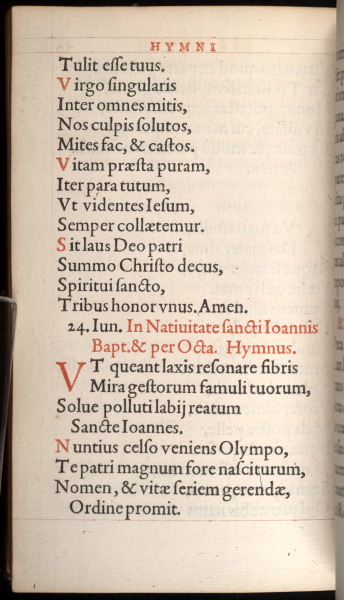 HYMNI
Tulit eſſe tuus.
Virgo ſingularis
Inter omnes mitis,
Nos culpis ſolutos,
Mites fac, & caſtos.
Vitam præſta puram,
Iter para tutum,
Vt videntes Ieſum,
Semper collætemur.
Sit laus Deo patri
Summo Chriſto decus,
Spiritui ſancto,
Tribus honor vnus. Amen.
24. Iun. In Natiuitate ſancti Ioannis
Bapt. & per Octa. Hymnus.
VT queant laxis reſonare fibris
Mira geſtorum famuli tuorum,
Solue polluti labij reatum
Sancte Ioannes.
Nuntius celſo veniens Olympo,
Te patri magnum fore naſciturum,
Nomen, & vitæ ſeriem gerendæ,
Ordine promit.